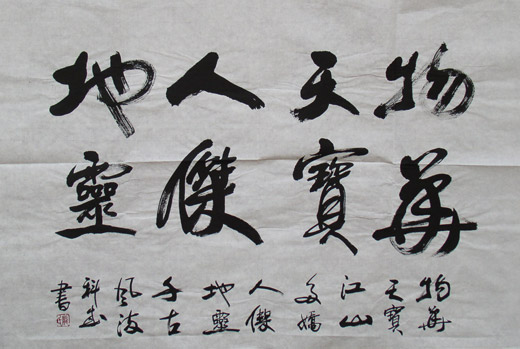 物華
天寶
人傑
地靈
物華
天寶
江山
多嬌
人傑
地靈
千古
風流
書